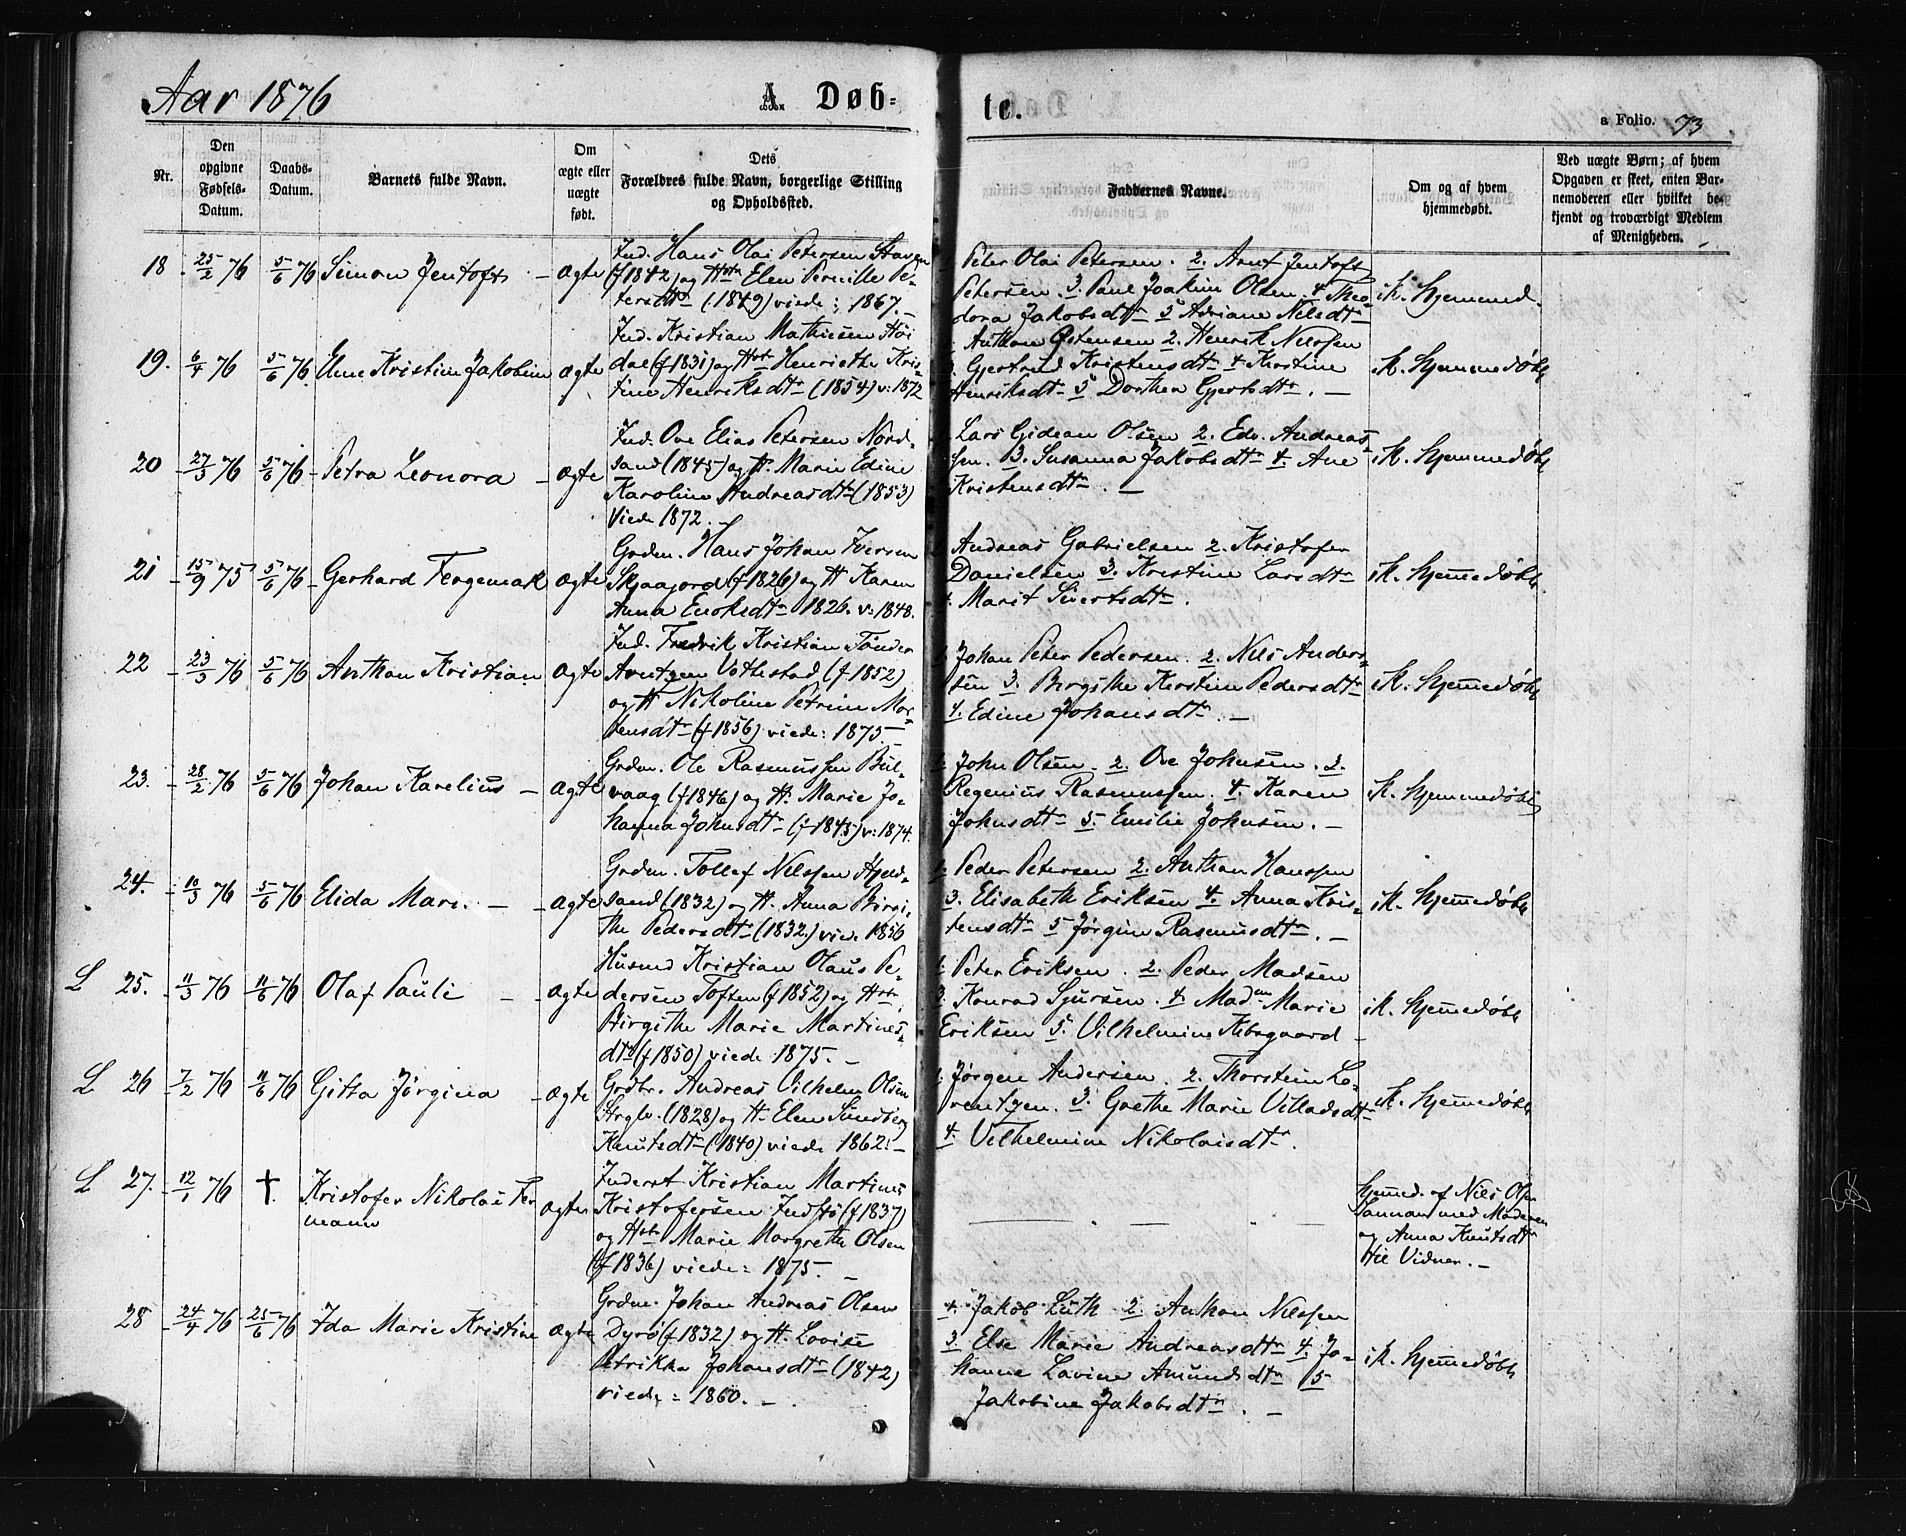 Aar 1876
A. Døb-
te.
a Folio. 73
Nr.
Den opgivne Fødsels-Datum.
Daabs-Datum.
Barnets fulde Navn.
Om ægte eller uægte født.
Dets Forældres fulde Navn, borgerlige Stilling og Opholdssted.
Faddernes Navne.
Om og af hvem hjemmedøbt.
Ved uægte Børn; af hvem Opgaven er skeet, enten Barnemoderen eller hvilket bekjendt og troværdigt Medlem af Menigheden.
18 25/2 76 5/6 76 Simon Jentoft - ægte
Ind. Hans Olai Petersen
(f 1842) og Hstr Elen Pernille Pe-
tersdtr (1849) viede: 1867. -
Peter Olai Petersen. 2. Arnt Jentoft
Petersen. 3. Paul Joakim Olsen. 4 Theo-
dora Jakobsdtr 5 Adriane Nilsdtr
ik. hjemmed.
19. 6/4 76 5/6 76 Elene Kristine Jakobine ægte
Ind. Kristian Mathisen Høi
dal (f 1831) og Hstr Henriethe Kris-
tine Henriksdtr (1854) v: 1872
Anthon Østensen 2. Henrik Nilssen
3. Gjertrud Kristensdtr 4 Kirstine
Henriksdtr 5 Dorthea Gjertsdtr. -
ik. hjemmedøbt
20 27/3 76 5/6 76 - Petra Leonora - ægte
Ind. Ove Elias Petersen Nord-
sand (1845) og H. Marie Edine
Karoline Andreasdtr (1853)
viede 1872. -
Lars Gidean Olsen 2. Edv. Andreas-
sen. 3. Susanna Jakobsdtr 4. Ane
Kristensdtr. -
ik. hjemmedøbt
21 15/9 75 5/6 76 - Gerhard Fergemak ægte
Grdm. Hans Johan Iversen
Skjaajord (f 1826) og H Karen
Anna Enoksdtr 1826. v: 1848.
Andreas Gabrielsen 2. Kristofer
Danielsen 3. Kristine Larsdtr
4. Marit Sivertsdtr.
ik. hjemmedøbt
22 23/3 76 5/6 76 Anthon Kristian ægte
Ind. Fredrik Kristian Tönder
Arntzen Vothestad (f 1852)
og H Nikoline Petrine Mor-
tensdtr (f 1856) viede: 1875. -
1. Johan Peter Pedersen. 2. Nils Anders-
sen 3. Birgithe Kerstine Pedersdtr
4. Edine Johansdtr. -
ik. hjemmedøbt
23. 28/2 76 5/6 76 Johan Karelius - ægte
Grdm. Ole Rasmussen Bul-
vaag (f 1846) og H. Marie Jo-
hanna Johnsdtr (f 1845) v: 1874.
1. John Olsen. 2. Ove Johnsen. 3.
Regenius Rasmussen. 4. Karen
Johnsdtr 5. Emilie Johnsen. -
ik. hjemmedøbt
24. 10/3 76 5/6 76 Elida Mari. - - ægte
Grdm. Tollef Nilssen Hjeld-
sand (1832) og H. Anna Birgi-
the Pedersdtr (1832.) viede 1856
1. Peder Petersen 2. Anthon Hanssen
3. Elisabeth Eriksen 4. Anna Kris-
tensdtr 5 Jørgine Rasmusdtr. -
ik. hjemmedøbt
L 25. 11/3 76 11/6 76 Olaf Pauli - - ægte
Husmd Kristian Olaus Pe-
dersen Toften (f 1852) og Hstr
Birgithe Marie Martines-
dtr (f 1850) viede 1875. -
1. Peter Eriksen. 2. Peder Madsen
3. Konrad Sjursen. 4. Madam Marie
Eriksen 5. Vilhelmine Kibsgaard -
ik. hjemmedøbt
L 26 7/2 76 11/6 76 Gitta Jørgina - ægte
Grdbr. Andreas Vilhelm Olsen
(1828) og H. Elen Sundberg
Knutsdtr (1840) viede 1862. -
1. Jørgen Andersen. 2. Thorstein Lo-
rentzen. 3. Grethe Marie Villadsdtr
4. Vilhelmine Nikolaisdtr.
ik. hjemmedøbt
L 27. 12/1 76 †. Kristofer Nikolai Fer
mann ægte
Inderst Kristian Martinus
Kristofersen Indstö (f 1837)
og Hstr Marie Margrethe Olsen
(f 1836) viede: 1875. -
Hjemmed. af Nils Olsen
Sannan med Moderen
og Anna Knutsdtr
til Vidner. -
28 24/4 76 25/6 76 Ida Marie Kristine ægte
Grdm. Johan Andreas Olsen
Dyrö (f 1832) og H. Lovise
Petrikka Johansdtr (1842)
viede: 1860. -
1. Jakob Luth. 2. Anthon Nilssen
3 Else Marie Andreasdtr 4. Jo-
hanne Lavine Amundsdtr 5
Jakobine Jakobsdtr. -
ik. hjemmedøbt